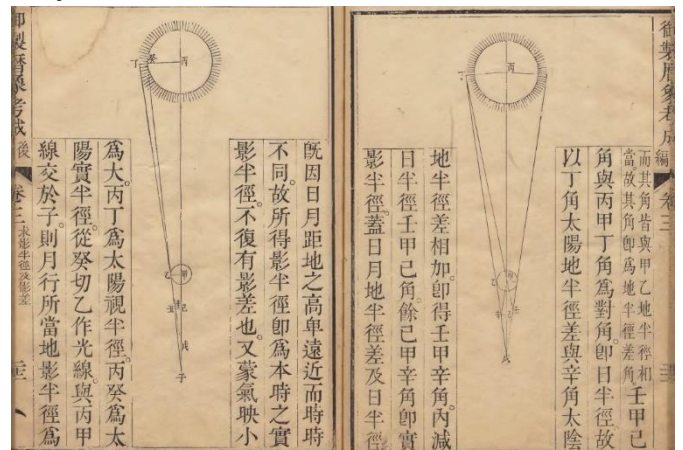 御製曆象考成
編
卷三
而其角皆與甲乙地半徑相
當故其角卽爲地半徑差角
壬甲己
角與丙甲丁角爲對角。卽日半徑故
以丁角太陽地半徑差與辛角太陰
丙
丁
甲
戊
地半徑差相加。卽得壬甲辛角。內減
日半徑壬甲己角。餘己甲辛角卽實
影半徑。蓋日月地半徑差及日半徑
旣因日月距地之高卑遠近而時時
不同。故所得影半徑卽爲本時之實
影半徑。不復有影差也。又蒙氣映小
丙
癸
丁
甲
乙
戊
子
爲大。丙丁爲太陽視半徑。丙癸爲太
陽實半徑。從癸切乙作光線。與丙甲
線交於子。則月行所當地影半徑爲
御製曆象考成
後
卷三
求影半徑及影差